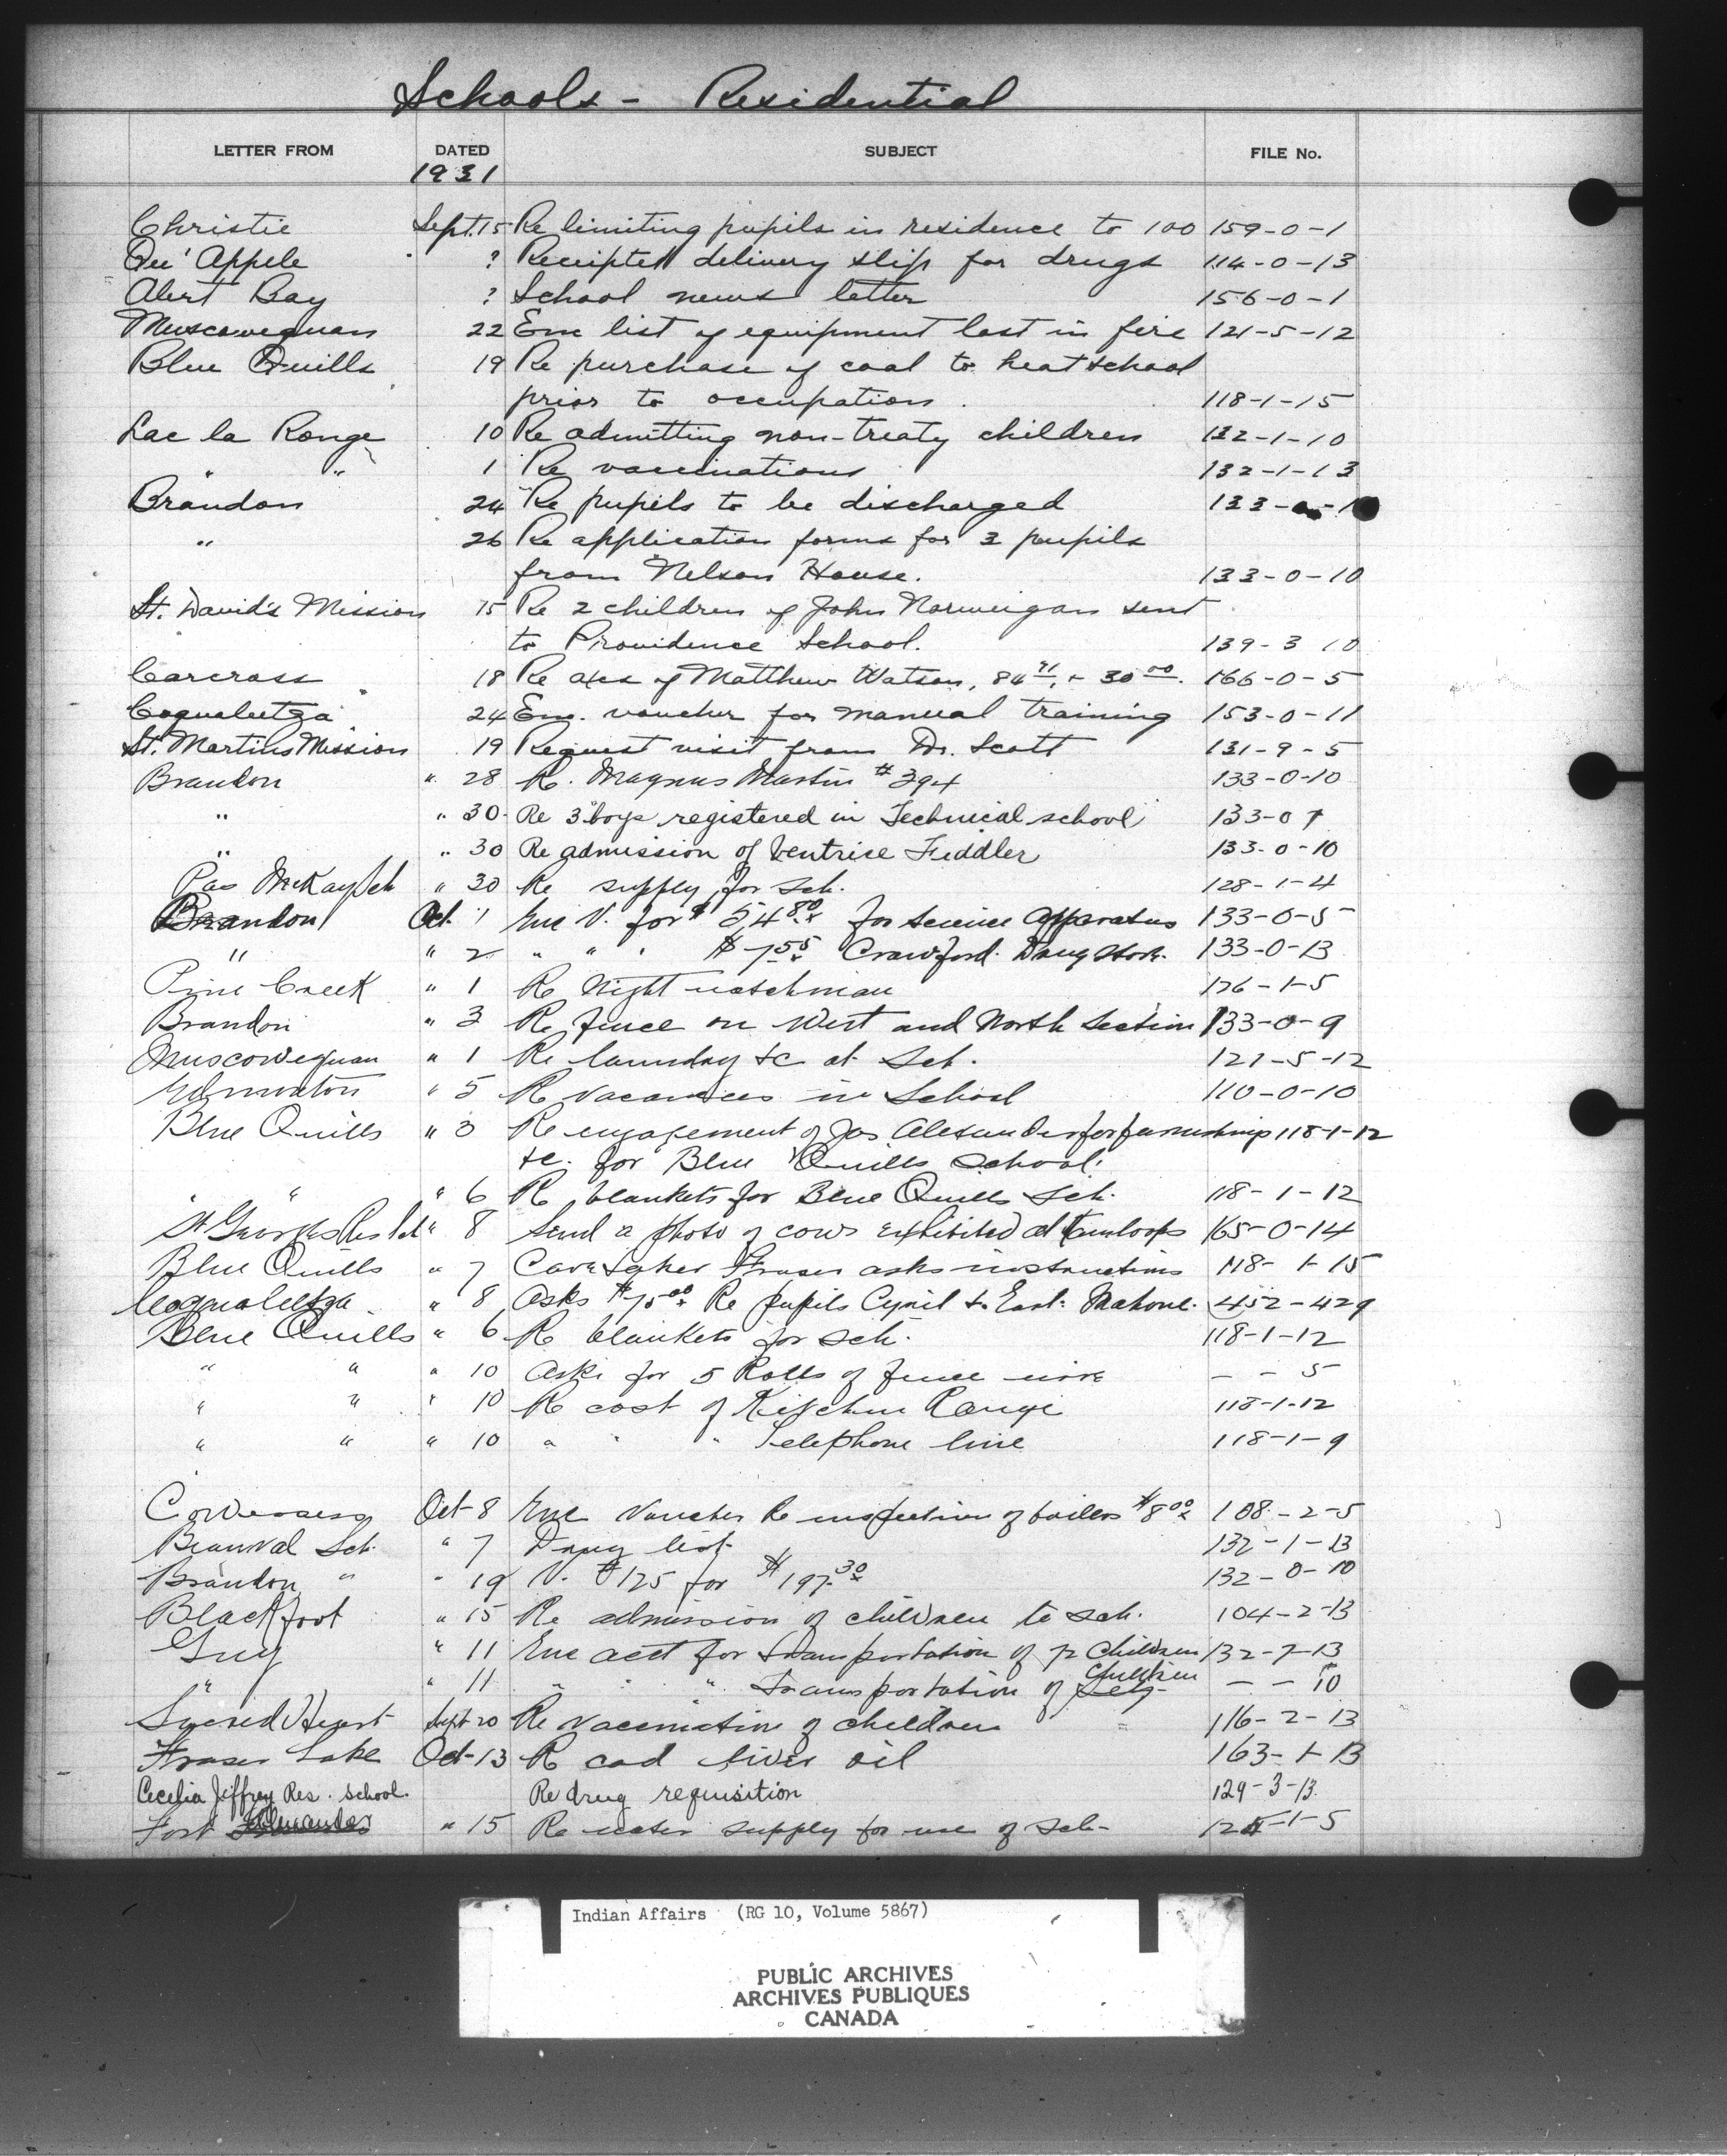 Schools - Residential
LETTER FROM DATED SUBJECT FILE No.
1931
Christie Sept. 15 Re limiting pupils in residence to 100 159-0-1
Qu' Appele ? Receipted delivery slip for drugs 114-0-13
Alert Bay ? School news letter 156-0-1
Muscowequan 22 Enc list of equipment lost in fire 121-5-12
Blue Quills 19 Re purchase of coal to heat school
prior to occupation. 118-1-15
Lac la Ronge 10 Re admitting non-treaty children 132-1-10
" " 1 Re vaccinations 132-1-13
Brandon 24 Re pupils to be discharged 133-
" 26 Re application forms for 3 pupils
from Nelson House. 133-0-10
St. David's Mission 15 Re 2 children of John Norweigan sent
to Providence School. 139-3 10
Carcross 18 Re a/cs of Matthew Watson, 84 91, + 30 00. 166-0-5
Coqualeetza 24 Enc. voucher for manual training 153-0-11
St. Martins Mission 19 Request visit from Dr. Scott 131-9-5
Brandon " 28 R. Magnus Martin # 394 133-0-10
" " 30 Re 3 boys registered in Technical school 133-0 1
" " 30 Re admission of Ventrice Fiddler 133-0-10
Pas McKay Sch " 30 Re supply for Sch. 128-1-4
Brandon Oct 1 Enc V. for $ 54 80 for science apparatus 133-0-5
" " 2 " " " $ 7 55 Crawford Drug Store. 133-0-13
Pine Creek " 1 Re Night watchman 126-1-5
Brandon " 3 Re fence on West and North Section 133-0-9
Muscowequan " 1 Re laundry &c at Sch. 121-5-12
Edmonton " 5 R Vacancies in School 110-0-10
Blue Quills " 3 Re engagement of Jas Alexander for furnishing 118-1-12
&c. for Blue Quills School.
" " " 6 R blankets for Blue Quills Sch. 118-1-12
St Georges Res Sch " 8 Send a photo of cows exhibited at Kamloops 165-0-14
Blue Quills " 7 Care taker Fraser asks instructions 118-1-15
Coqualeetza " 8 Asks $75 00 Re pupils Cyril & Earl 452-429
Blue Quills " 6 R blankets for Sch. 118-1-12
" " " 10 Asks for 5 Rolls of fence wire - - 5
" " " 10 R cost of Kitchen Range 118-1-12
" " " 10 " " " Telephone line 118-1-9
Cowessess Oct 8 Enc Voucher Re inspection of boilers $8 00 108-2-5
Beauval Sch. " 7 Drug list 132-1-13
Brandon " " 19 V. #125 for $197.30 132-0-10
Blackfoot " 15 Re admission of children to Sch. 104-2-13
Guy " 11 Enc acct for transportation of 72 Children 132-7-13
" " 11 " " " Transportation of Children - - 10
Sacred Heart Sept 20 Re Vaccination of children 116-2-13
Fraser Lake Oct-13 R cod liver oil 163-1-13
Cecelia Jiffrey Res. School. Re drug requisition 129-3-13.
Fort Alexander " 15 Re water supply for use of Sch- -1-5
Indian Affairs (RG 10, Volume 5867)
PUBLIC ARCHIVES
ARCHIVES PUBLIQUES
CANADA